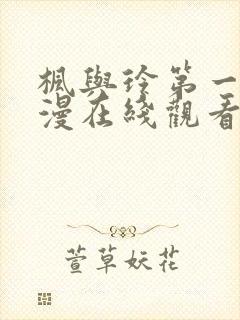 楓與玲第一
漫在綫觀看
萱草妖花